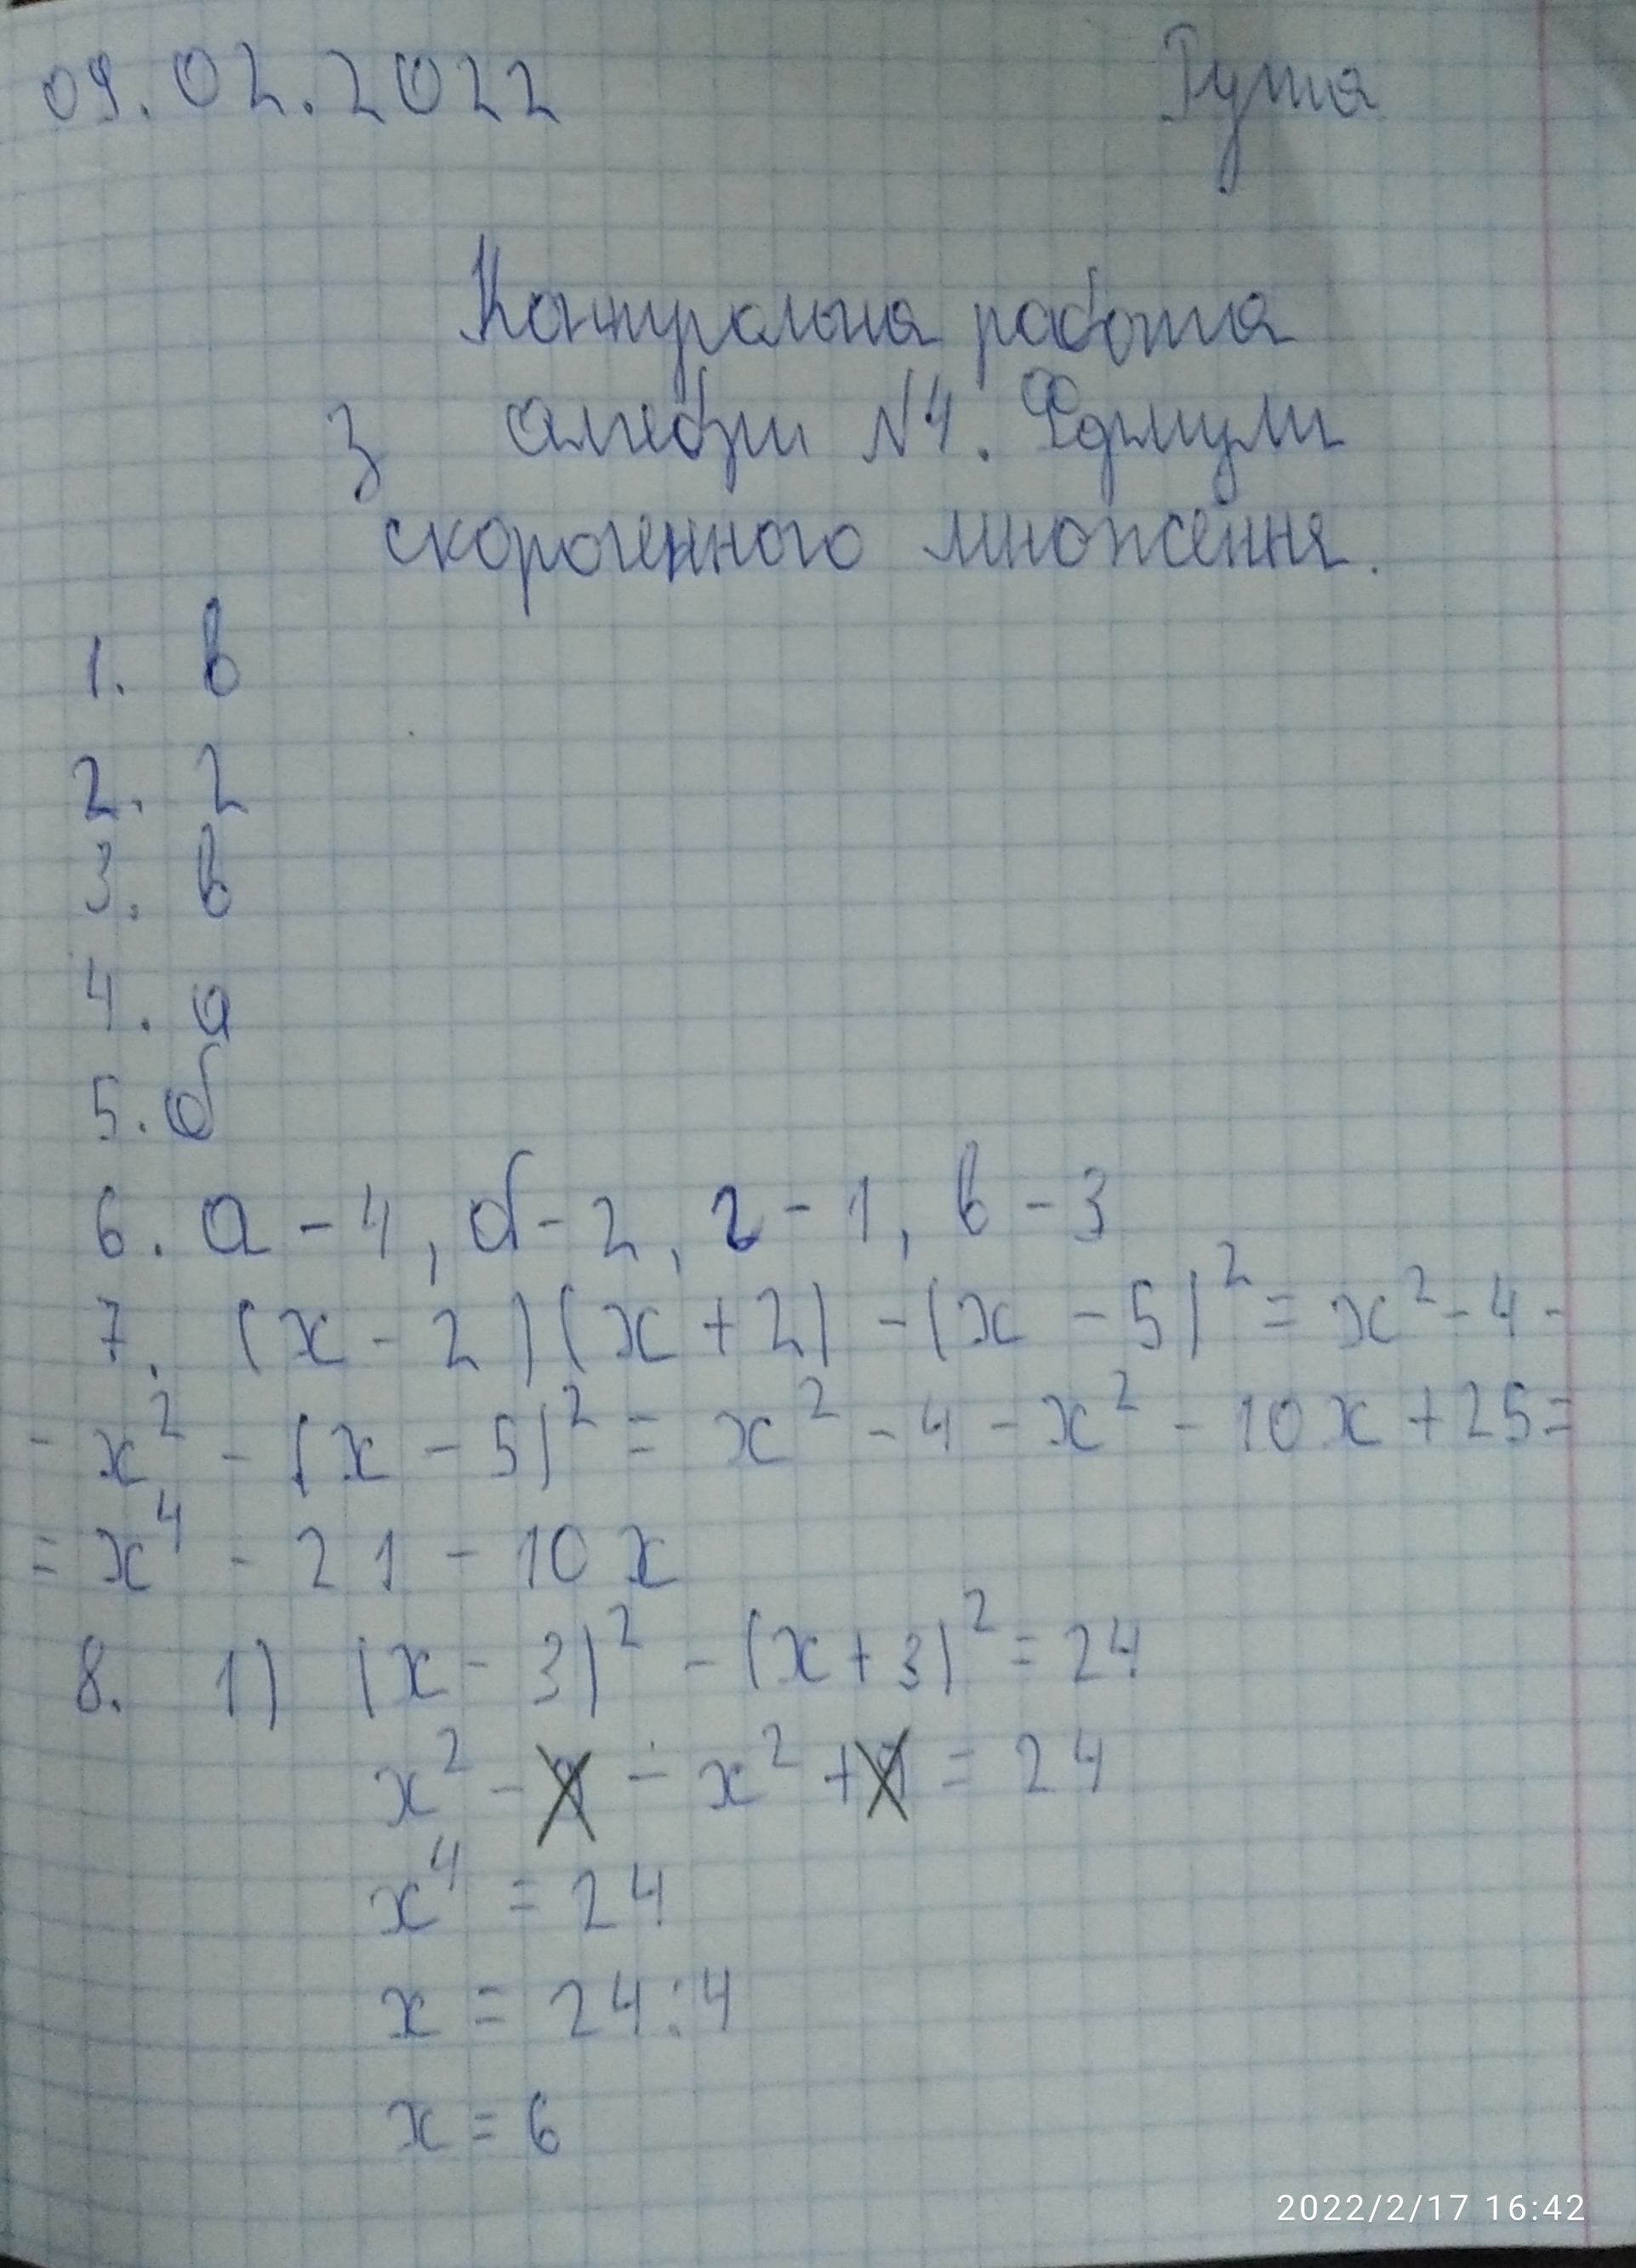 09.02.2022 Рута
Контрольна работа
з алгебри №4. Формули
скороченного множення.
1. в
2. г
3. в
4. а
5. б
6. а - 4, б - 2, г - 1, в - 3
7. (x - 2)(x + 2) - (x - 5)² = x² - 4 -
- x² - (x - 5)² = x² - 4 - x² - 10x + 25 =
= x⁴ - 21 - 10x
8. 1) (x - 3)² - (x + 3)² = 24
x² - - x² + = 24
x⁴ = 24
x = 24:4
x = 6
2022/2/17 16:42